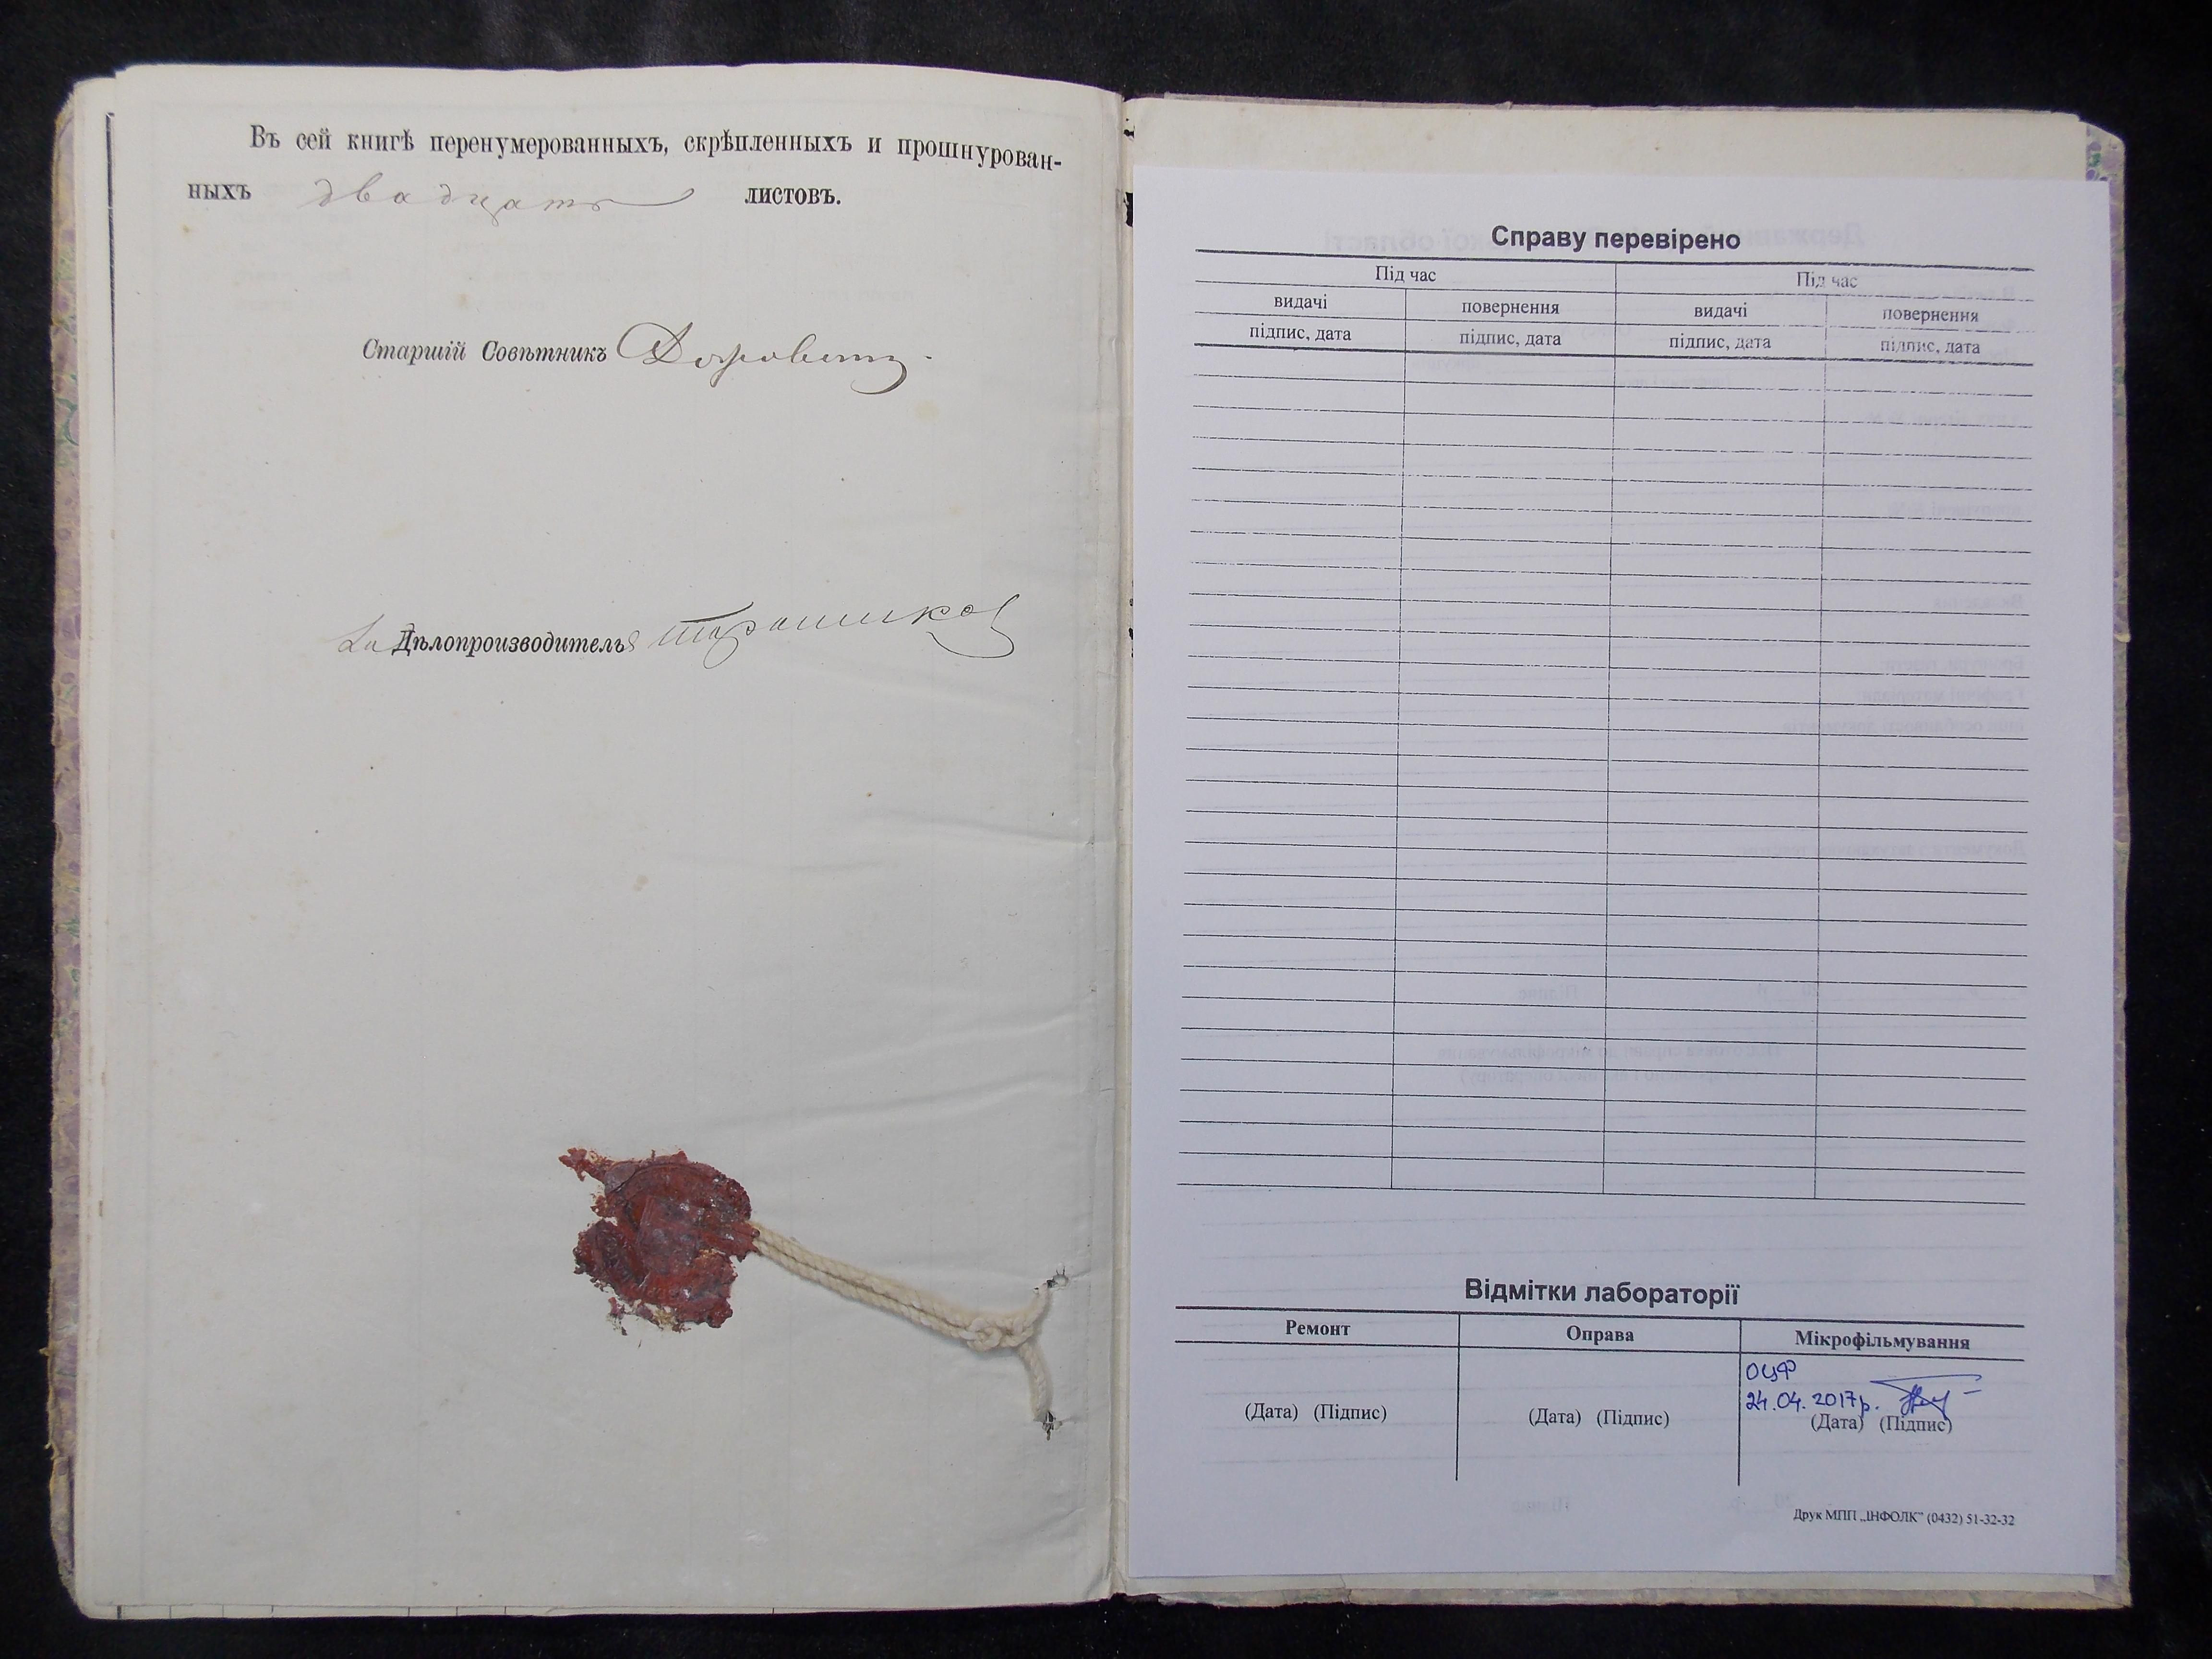 Въ сей книгѣ перенумерованныхъ, скрѣпленныхъ и прошнурован-
ныхъ двадцать листовъ.
Старшій Совѣтникъ
За Дѣлопроизводителя
Справу перевірено
Під час Під час
видачі повернення видачі повернення
підпис, дата підпис, дата підпис, дата підпис, дата
Відмітки лабораторії
Ремонт Оправа Мікрофільмування
ОЦФ
24.04.2017р.
(Дата) (Підпис) (Дата) (Підпис) (Дата) (Підпис)
Друк МПП „ІНФОЛК” (0432) 51-32-32